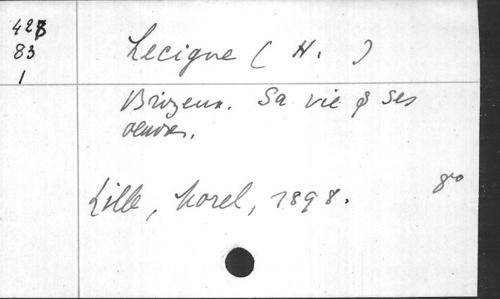 428
83
1
Lecigne ( H. )
Brizeux. Sa vie & ses
oeuvres.
Lille, Morel, 1898. 8º